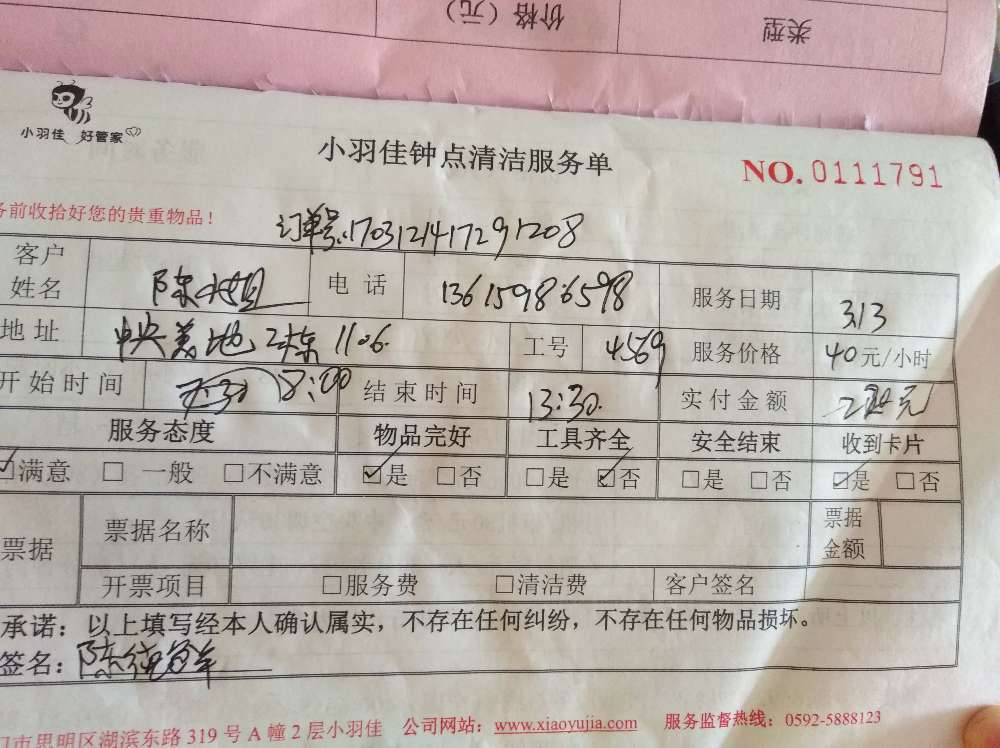 价格（元） 类型
小羽佳 好管家
小羽佳钟点清洁服务单
NO. 0111791
务前收拾好您的贵重物品！
订单号:1703121417291208
客户姓名 陈小姐 电话 13615986598 服务日期 3.13
地址 中央美地2栋1106 工号 4569 服务价格 40元/小时
开始时间 8:00 结束时间 13:30. 实付金额 元
服务态度 物品完好 工具齐全 安全结束 收到卡片
☑满意 □一般 □不满意 ☑是 □否 □是 ☑否 □是 □否 ☑是 □否
票据 票据名称 票据金额
开票项目 □服务费 □清洁费 客户签名
承诺：以上填写经本人确认属实，不存在任何纠纷，不存在任何物品损坏。
签名：陈
门市思明区湖滨东路 319 号 A 幢 2 层小羽佳 公司网站：www.xiaoyujia.com 服务监督热线：0592-5888123